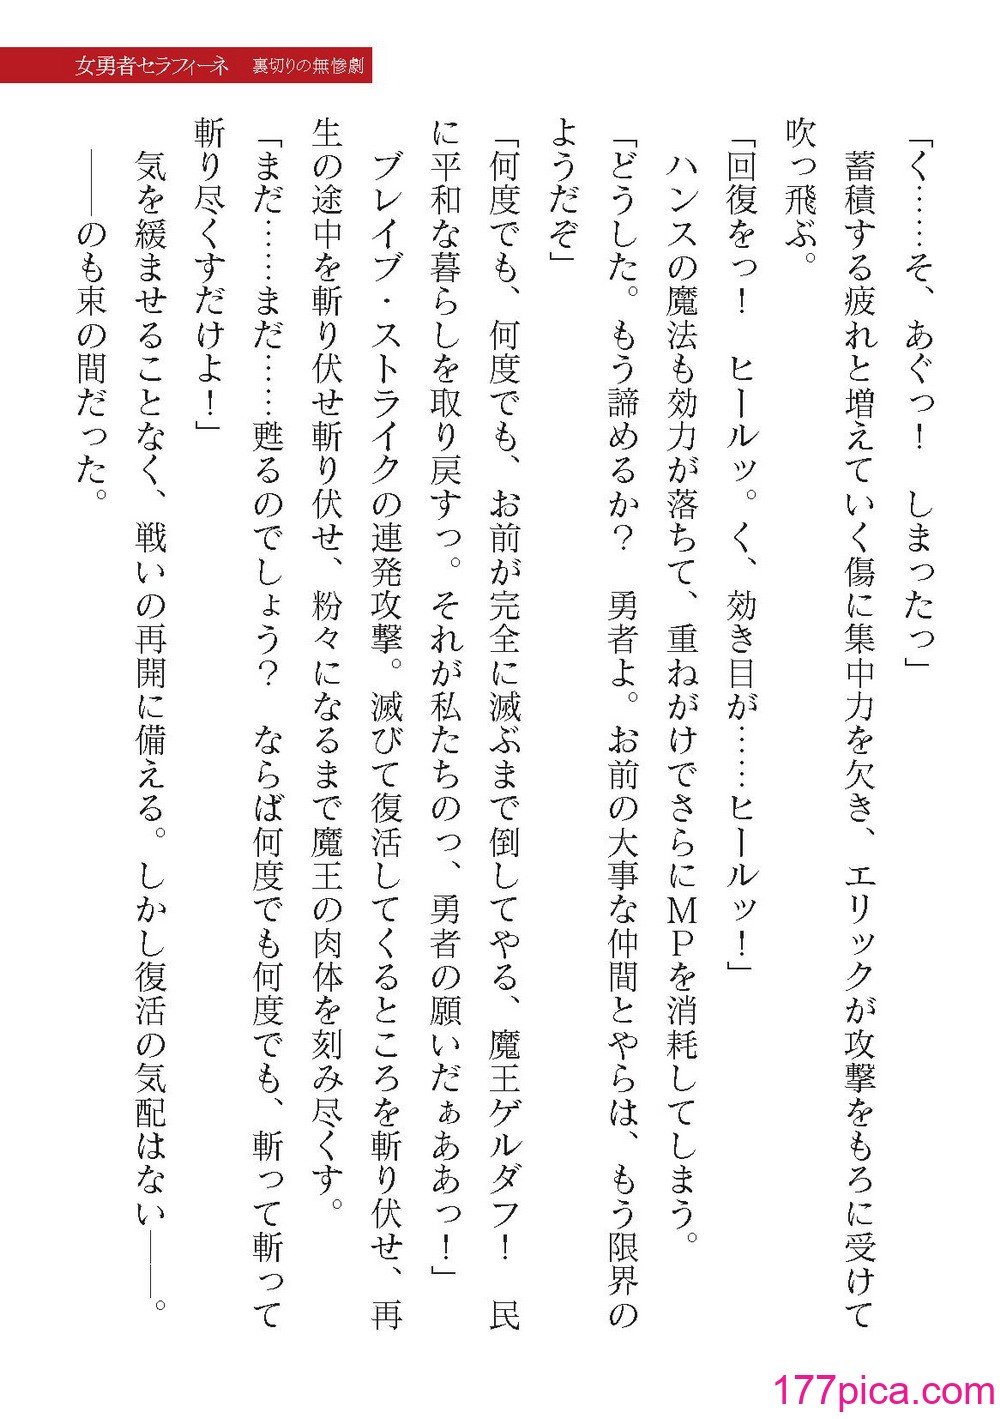 女勇者セラフィーネ　裏切りの無惨劇
「く……そ、あぐっ！　しまったっ」
　蓄積する疲れと増えていく傷に集中力を欠き、エリックが攻撃をもろに受けて
吹っ飛ぶ。
「回復をっ！　ヒールッ。く、効き目が……ヒールッ！」
　ハンスの魔法も効力が落ちて、重ねがけでさらにＭＰを消耗してしまう。
「どうした。もう諦めるか？　勇者よ。お前の大事な仲間とやらは、もう限界の
ようだぞ」
「何度でも、何度でも、お前が完全に滅ぶまで倒してやる、魔王ゲルダフ！　民
に平和な暮らしを取り戻すっ。それが私たちのっ、勇者の願いだぁああっ！」
　ブレイブ・ストライクの連発攻撃。滅びて復活してくるところを斬り伏せ、再
生の途中を斬り伏せ斬り伏せ、粉々になるまで魔王の肉体を刻み尽くす。
「まだ……まだ……甦るのでしょう？　ならば何度でも何度でも、斬って斬って
斬り尽くすだけよ！」
　気を緩ませることなく、戦いの再開に備える。しかし復活の気配はない――。
　――のも束の間だった。
177pica.com